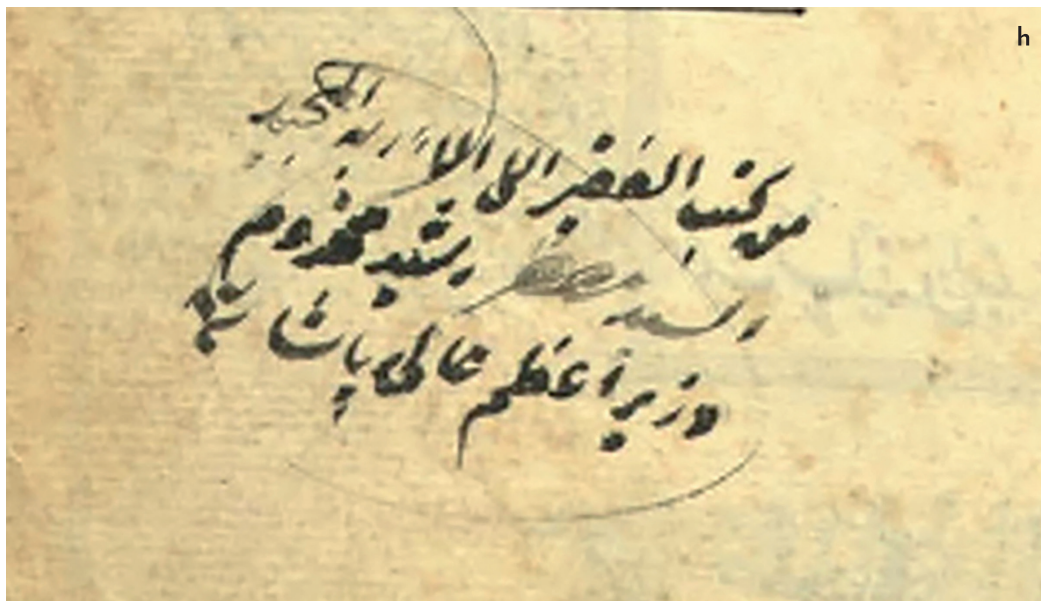 h
من كتب الفقير الى الله المجيد
السيد رشيد مخدوم
وزير اعظم عالى پاشا